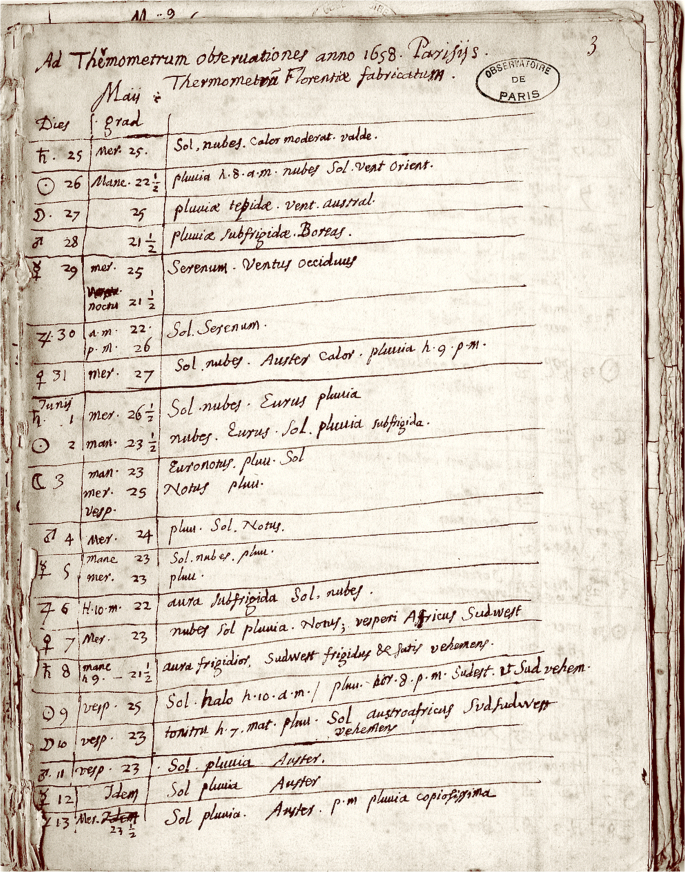 Ad Thermometrum observationes anno 1658. Parisijs.
3
Thermometrũ Florentiæ fabricatum.
OBSERVATOIRE
DE
PARIS
Maij
Dies grad
♄. 25 Mer. 25. Sol, nubes. Calor moderat. valde.
☉ 26 Mane. 22½ pluvia h. 8. a.m. nubes Sol. vent Orient.
☽. 27 25 pluviæ tepidæ. vent. austral.
♂ 28 21½ pluviæ subfrigidæ. Boreas.
☿ 29 mer. 25 Serenum. Ventus occiduus
noctu 21½
♃ 30 a.m. 22. Sol. Serenum.
p.m. 26
♀ 31 mer. 27 Sol. nubes. Auster Calor. pluvia h. 9. p.m.
Junij
♄. 1 mer. 26½ Sol. nubes. Eurus pluvia
☉ 2 man. 23½ nubes. Eurus. Sol. pluvia subfrigida.
☾ 3 man. 23 Euronotus. pluv. Sol
mer. 25 Notus pluv.
vesp.
♂ 4 Mer. 24 pluv. Sol. Notus.
☿ 5 mane 23 Sol. nubes. pluv.
mer. 23 pluv.
♃ 6 H. 10. m. 22 aura subfrigida Sol. nubes.
♀ 7 Mer. 23 nubes Sol pluvia. Notus; vesperi Africus Sudwest
♄ 8 mane
h 9. — 21½ aura frigidior, Sudwest frigidus & satis vehemens.
☉ 9 vesp. 25 Sol. halo h. 10. a.m. / pluv. hor. 8. p.m. Sudest. et Sud vehem.
☽ 10 vesp. 23 tonitru h. 7. mat. pluv. Sol austroafricus Sudsudwest
vehemens
♂. 11 vesp. 23 Sol. pluvia Auster.
☿ 12 Idem Sol pluvia Auster
♃ 13 Mer. Idem Sol pluvia. Auster. p.m pluvia copiosissima
23½